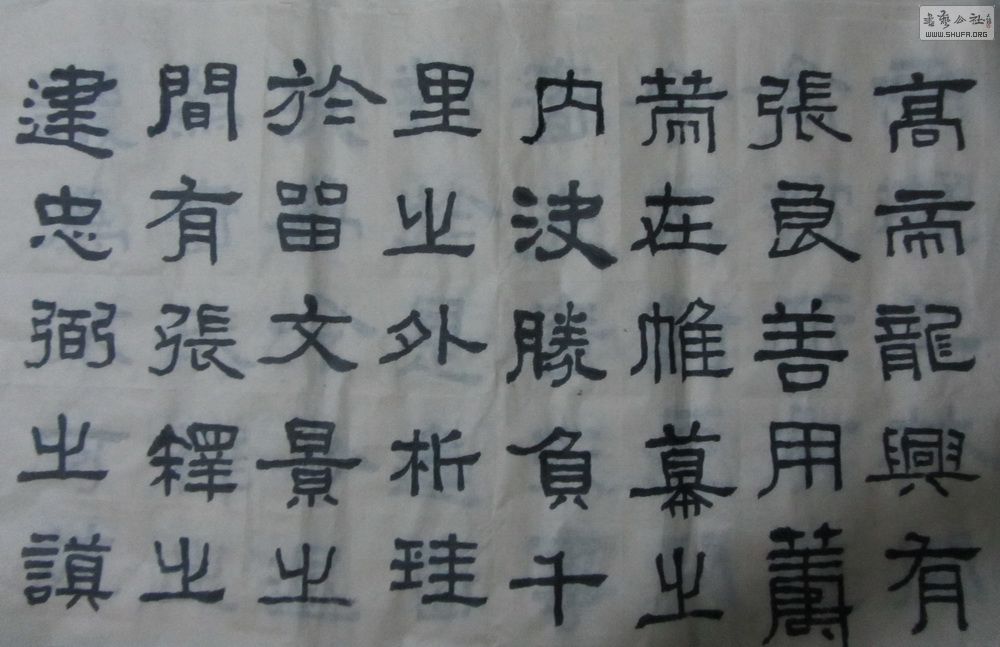 高帝龍興有
張良善用籌
策在帷幕之
内決勝負千
里之外析珪
於留文景之
間有張釋之
建忠弼之謨
書藝公社
WWW.SHUFA.ORG